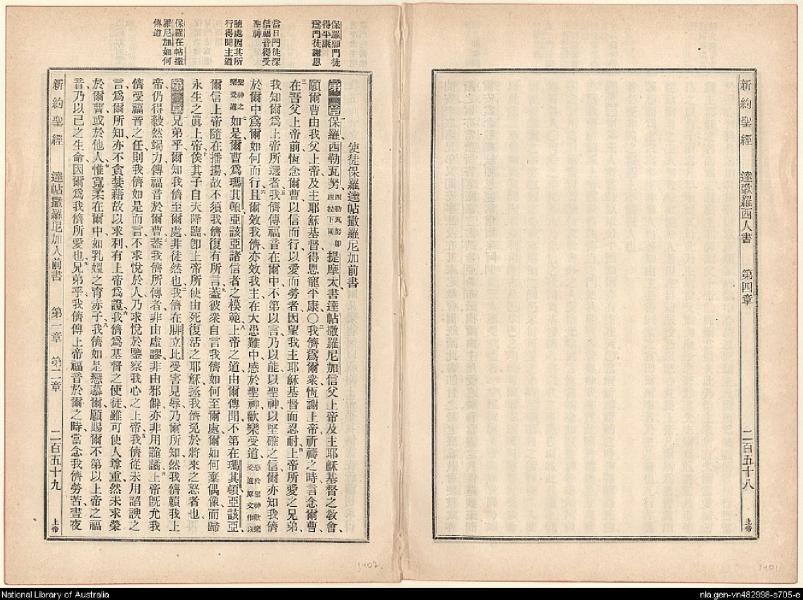 新約聖經
達歌羅西人書
第四章
二百五十八
上帝
保羅願門徒
得平康
爲門徒謝恩
當日門徒深
信福音得受
聖神
隨處因其所
行得聞主道
保羅在帖撒
羅尼加如何
傳道
使徒保羅達帖撒羅尼加前書
第一章保羅西勒瓦努西勒瓦努卽西拉下同提摩太書達帖撒羅尼加信父上帝及主耶穌基督之敎會
願爾曹由我父上帝及主耶穌基督得恩寵平康〇我儕爲爾衆恆謝上帝祈禱之時言念爾曹
在吾父上帝前恆念爾曹以信而行以愛而勞者因望我主耶穌基督而忍耐上帝所愛之兄弟
我知爾爲上帝所選者我儕傳福音在爾中不第以言乃以能以聖神以堅確之信爾亦知我儕
於爾中爲爾如何而行且爾效我儕亦效我主在大患難中感於聖神歡樂受道
如是爾曹爲瑪其頓亞該亞諸信者之模範上帝之道由爾傳開不第在瑪其頓亞該亞
爾信上帝隨在播揚故不須我儕復有所言蓋彼衆自言我儕如何至爾處爾如何棄偶像而歸
永生之眞上帝俟其子自天降臨卽上帝所使由死復活之耶穌拯我儕免於將來之怒者也
第二章兄弟乎爾知我儕至爾處非徒然也我儕在腓立比受害見辱乃爾所知然我儕賴我上
帝仍得毅然竭力傳福音於爾曹蓋我儕所傳者非由虛謬非由邪僻亦非用詭譎上帝旣允我
儕受福音之任則我儕如是而言不求悅於人乃求悅於鑒察我心之上帝我儕從未用諂諛之
言爲爾所知亦不貪婪藉故以求利有上帝爲證我儕爲基督之使徒雖可使人尊重然未求榮
於爾曹或於他人惟寬柔在爾中如乳媼之育赤子我儕如是戀慕爾願賜爾不第以上帝之福
音乃以己之生命因爾爲我儕所愛也兄弟乎我儕傳上帝福音於爾之時當念我儕勞苦晝夜
新約聖經
達帖撒羅尼加人前書
第一章
第二章
二百五十九
上帝
1407
1401
National Library of Australia
nla.gen-vn482998-s705-e